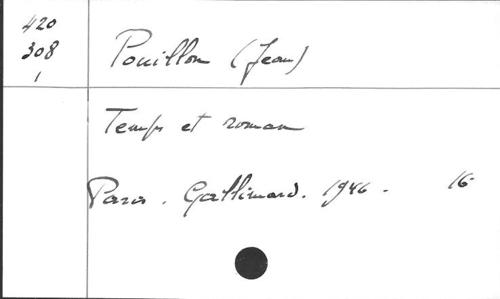 420
308
1
Pouillon (Jean)
Temps et roman
Paris. Gallimard. 1946. 16